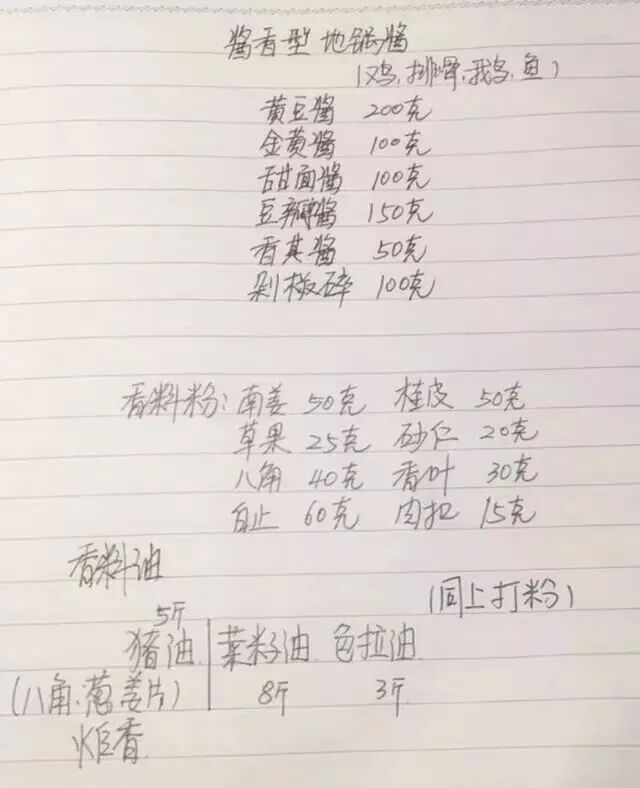 酱香型 地锅酱
(鸡,排骨,我鸟,鱼)
黄豆酱 200克
金黄酱 100克
甜面酱 100克
豆瓣酱 150克
香其酱 50克
剁椒碎 100克
香料粉: 南姜 50克 桂皮 50克
草果 25克 砂仁 20克
八角 40克 香叶 30克
白止 60克 肉扣 15克
香料油
(同上打粉)
5斤
猪油 菜籽油 色拉油
(八角.葱姜片) 8斤 3斤
炬香